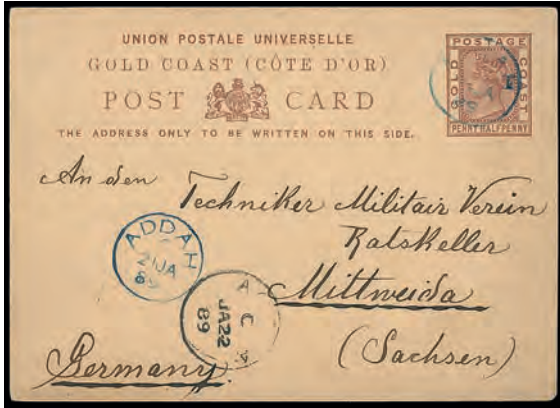 UNION POSTALE UNIVERSELLE
GOLD COAST (CÔTE D'OR)
POST CARD
THE ADDRESS ONLY TO BE WRITTEN ON THIS SIDE.
POSTAGE
GOLD
COAST
PENNY HALFPENNY
An den
Techniker Militair Verein
Ratskeller
Mittweida
(Sachsen)
Germany.
ADDAH
21 JA
89
A C A
JA 22
89